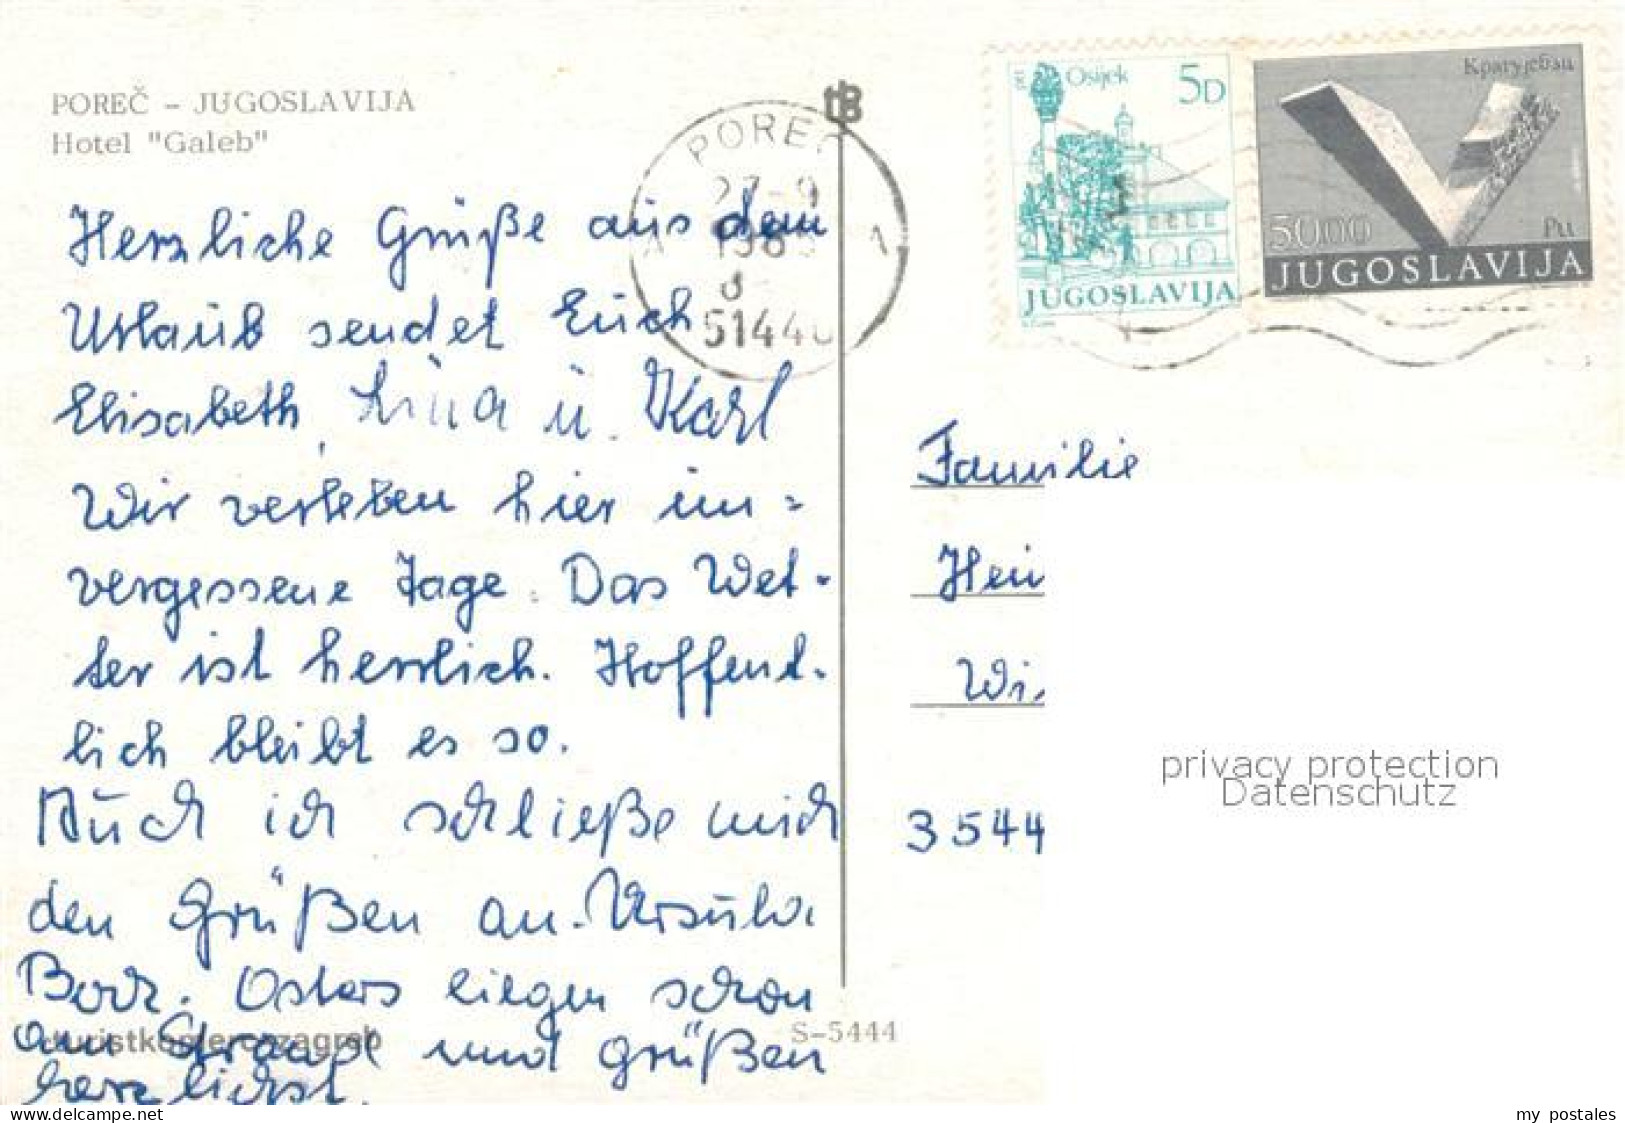 POREČ - JUGOSLAVIJA
Hotel "Galeb"
tB
POREČ
27-9
51440
1
Osijek
5D
JUGOSLAVIJA
Крагујевац
50.00
JUGOSLAVIJA
Herzliche Grüße aus dem
Urlaub sendet Euch
Elisabeth, Lina u. Karl
Wir verleben hier un=
vergessene Tage. Das Wet-
ter ist herrlich. Hoffent-
lich bleibt es so.
Auch ich schließe mich
den Grüßen an. Ursula
Osters liegen schon
am Strand und grüßen
herzlichst.
turistkomerc zagreb
S-5444
Familie
Hei
Wi
3544
privacy protection
Datenschutz
www.delcampe.net
my_postales